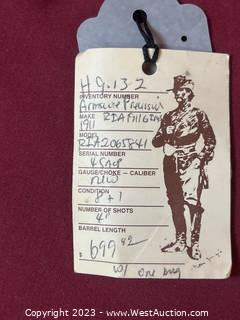 HG.13-2
INVENTORY NUMBER
Armscor Precision
MAKE
1911
MODEL
RIA2065841
SERIAL NUMBER
45 ACP
GAUGE/CHOKE – CALIBER
new
CONDITION
8+1
NUMBER OF SHOTS
4"
BARREL LENGTH
$ 699.92
w/ one mag
Copyright 2023 - www.WestAuction.com